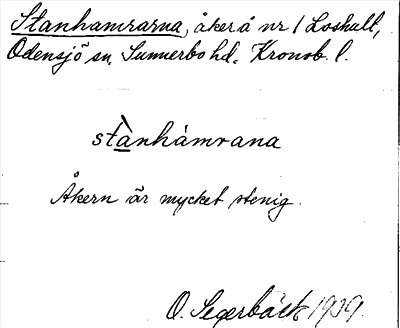 Stanhamrarna, åker å nr 1 Loshult,
Odensjö sn, Sunnerbo hd. Kronob. l.
stànhámrana
Åkern är mycket stenig.
O. Segerbäck 1929.